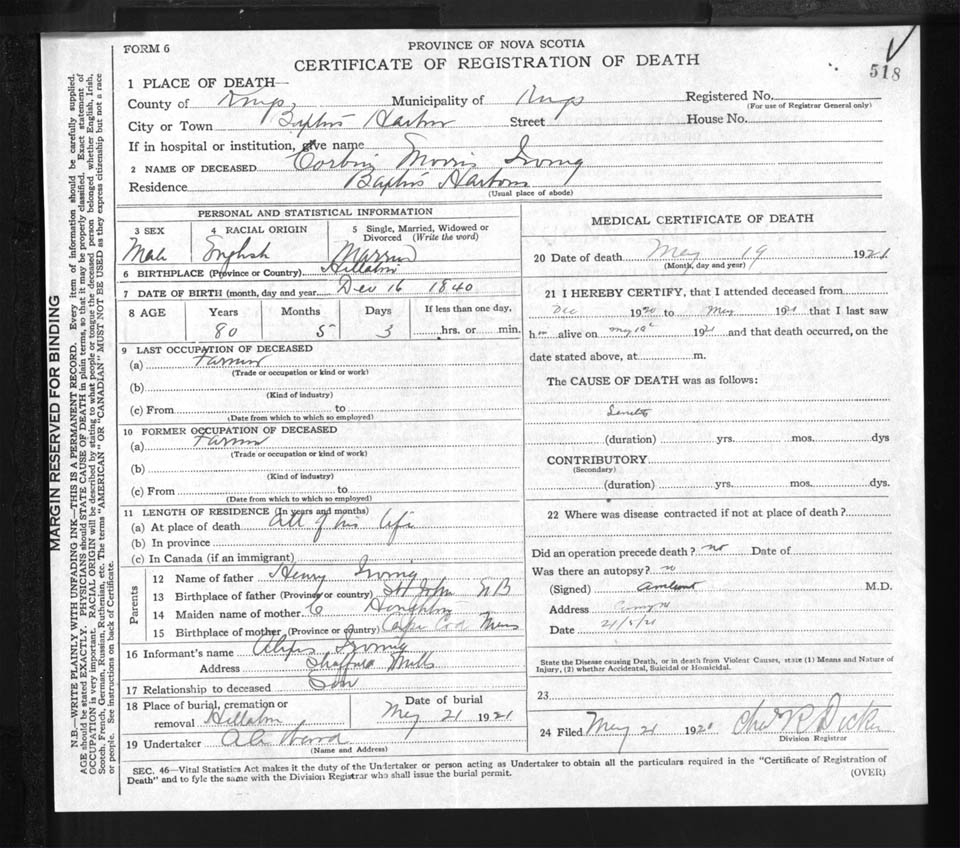 FORM 6
PROVINCE OF NOVA SCOTIA
CERTIFICATE OF REGISTRATION OF DEATH
518
1 PLACE OF DEATH—
County of Kings, Municipality of Kings Registered No.
(For use of Registrar General only)
City or Town Harbor Street House No.
If in hospital or institution, give name
2 NAME OF DECEASED Corbin Morris Irving
Residence Harbor
(Usual place of abode)
PERSONAL AND STATISTICAL INFORMATION
3 SEX
4 RACIAL ORIGIN
5 Single, Married, Widowed or Divorced (Write the word)
Male English Married
6 BIRTHPLACE (Province or Country)
7 DATE OF BIRTH (month, day and year) Dec 16 1840
8 AGE Years Months Days If less than one day,
80 5 3 hrs. or min.
9 LAST OCCUPATION OF DECEASED
(a) Farmer
(Trade or occupation or kind or work)
(b)
(Kind of industry)
(c) From to
(Date from which to which so employed)
10 FORMER OCCUPATION OF DECEASED
(a) Farmer
(Trade or occupation or kind or work)
(b)
(Kind of industry)
(c) From to
(Date from which to which so employed)
11 LENGTH OF RESIDENCE (In years and months)
(a) At place of death all of his life
(b) In province
(c) In Canada (if an immigrant)
Parents
12 Name of father Henry Irving
13 Birthplace of father (Province or country) St John N B
14 Maiden name of mother C Houghton
15 Birthplace of mother (Province or country) Cape Cod Mass
16 Informant's name Irving
Address Sheffield Mills
17 Relationship to deceased Son
18 Place of burial, cremation or removal
Date of burial
May 21 1921
19 Undertaker Ward
(Name and Address)
MEDICAL CERTIFICATE OF DEATH
20 Date of death May 19 1921
(Month, day and year)
21 I HEREBY CERTIFY, that I attended deceased from
Dec 1920 to May 1921 that I last saw
him alive on May 19 1921 and that death occurred, on the
date stated above, at m.
The CAUSE OF DEATH was as follows:
(duration) yrs. mos. dys
CONTRIBUTORY
(Secondary)
(duration) yrs. mos. dys.
22 Where was disease contracted if not at place of death?
Did an operation precede death? no Date of
Was there an autopsy? no
(Signed) M.D.
Address
Date 21/5/21
State the Disease causing Death, or in death from Violent Causes, state (1) Means and Nature of
Injury, (2) whether Accidental, Suicidal or Homicidal.
23
24 Filed May 21 192 Chas R Dickie
Division Registrar
SEC. 46—Vital Statistics Act makes it the duty of the Undertaker or person acting as Undertaker to obtain all the particulars required in the "Certificate of Registration of
Death" and to fyle the same with the Division Registrar who shall issue the burial permit.
(OVER)
MARGIN RESERVED FOR BINDING
N.B.—WRITE PLAINLY WITH UNFADING INK—THIS IS A PERMANENT RECORD. Every item of information should be carefully supplied.
AGE should be stated EXACTLY. PHYSICIANS should STATE CAUSE OF DEATH in plain terms, so that it may be properly classified. Exact statement of
OCCUPATION is very important. RACIAL ORIGIN will be described by stating to what people or tongue the deceased person belonged whether English, Irish,
Scotch, French, German, Russian, Ruthenian, etc. The terms "AMERICAN" OR "CANADIAN" MUST NOT BE USED as they express citizenship but not a race
or people. See instructions on back of Certificate.